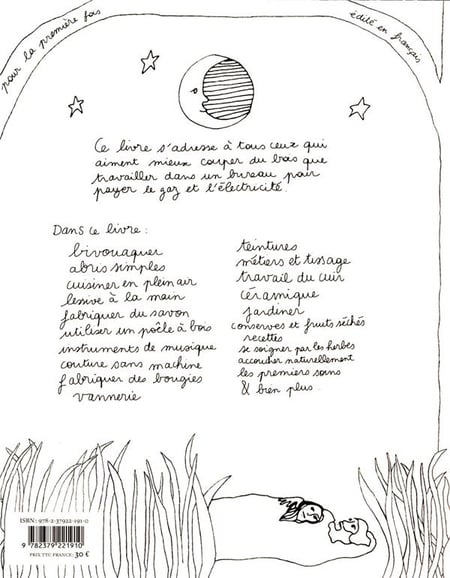 pour la première fois
édité en français
Ce livre s'adresse à tous ceux qui
aiment mieux couper du bois que
travailler dans un bureau pour
payer le gaz et l'électricité.
Dans ce livre :
bivouaquer
abris simples
cuisiner en plein air
lessive à la main
fabriquer du savon
utiliser un poêle à bois
instruments de musique
couture sans machine
fabriquer des bougies
vannerie
teintures
métiers et tissage
travail du cuir
céramique
jardiner
conserves et fruits séchés
recettes
se soigner par les herbes
accoucher naturellement
les premiers soins
& bien plus...
ISBN : 978-2-37922-191-0
9 782379 221910
PRIX TTC FRANCE : 30 €